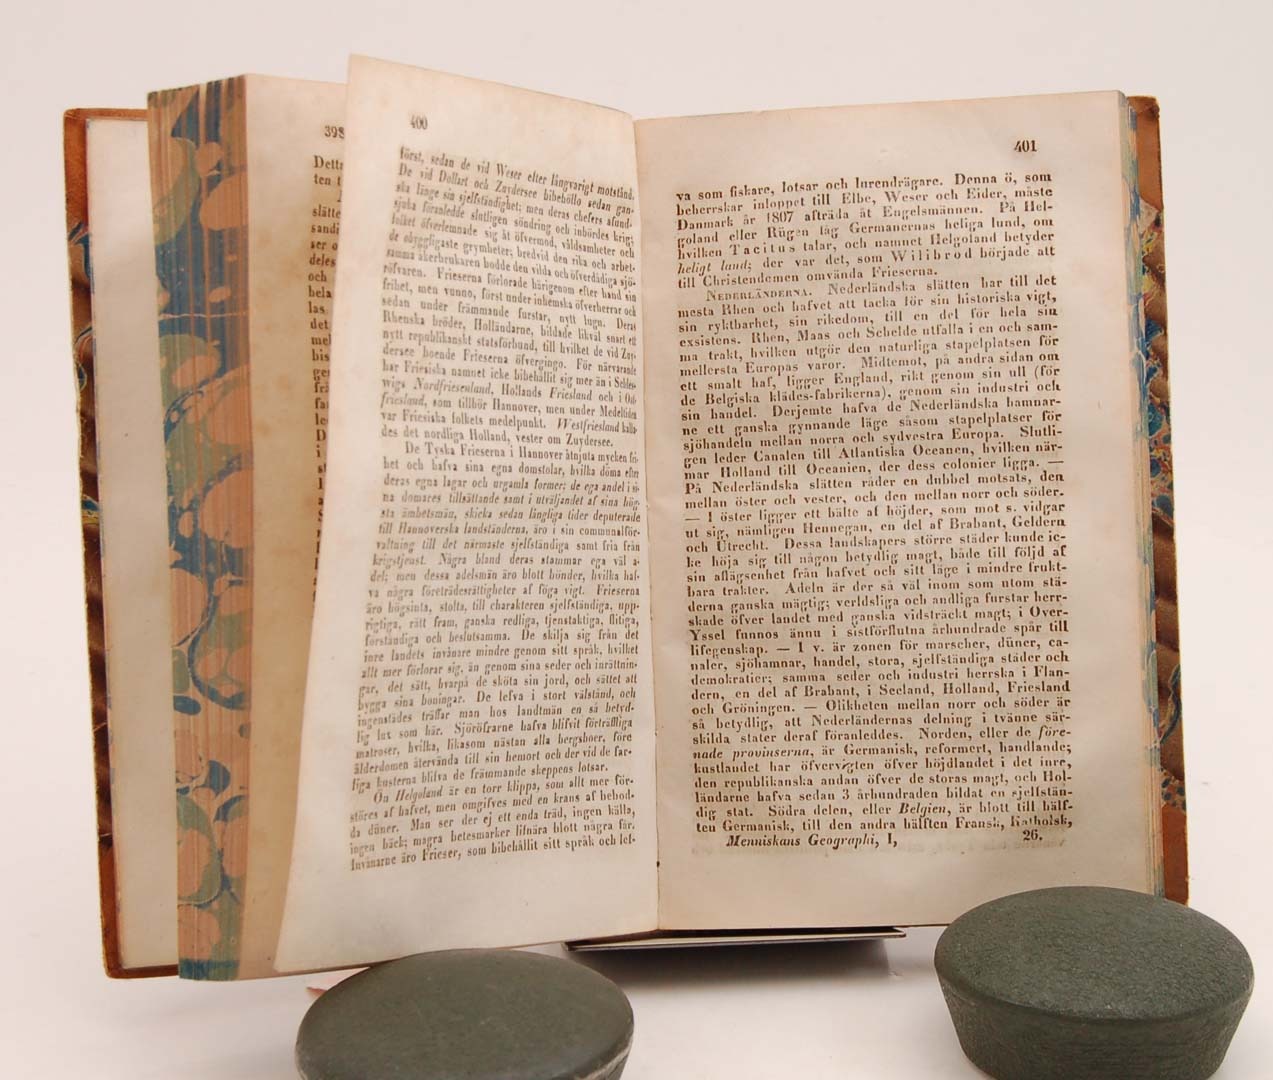 398
Dett
ten
slätte
sandi
ser o
deles
och
hela
las
det
mel
bis
gen
frä
fan
le
D
i
400
först, sedan de vid Weser efter långvarigt motstånd.
De vid Dollart och Zuydersee bibehöllo sedan gan-
ska länge sin sjelfständighet; men deras chefers afund-
sjuka föranledde slutligen söndring och inbördes krig;
folket öfverlemnade sig åt öfvermod, våldsamheter och
de obyggligaste grymheter; bredvid den rika och arbet-
samma åkerbrukaren bodde den vilda och öfverdådiga sjö-
röfvaren. Frieserna förlorade härigenom efter hand sin
frihet, men vunno, först under inhemska öfverherrar och
sedan under främmande furstar, nytt lugn. Deras
Rhenska bröder, Holländarne, bildade likväl snart ett
nytt republikanskt statsförbund, till hvilket de vid Zuy-
dersee boende Frieserna öfvergingo. För närvarande
har Friesiska namnet icke bibehållit sig mer än i Schles-
wigs Nordfriesenland, Hollands Friesland och i Ost-
friesland, som tillhör Hannover, men under Medeltiden
var Friesiska folkets medelpunkt. Westfriesland kalla-
des det nordliga Holland, vester om Zuydersee.
De Tyska Frieserna i Hannover åtnjuta mycken fri-
het och hafva sina egna domstolar, hvilka döma efter
deras egna lagar och urgamla former; de ega andel i si-
na domares tillsättande samt i utväljandet af sina hög-
sta ämbetsmän, skicka sedan långliga tider deputerade
till Hannoverska landständerna, äro i sin communalför-
valtning till det närmaste sjelfständiga samt fria från
krigstjenst. Några bland deras stammar ega väl a-
del; men dessa adelsmän äro blott bönder, hvilka haf-
va några företrädesrättigheter af föga vigt. Frieserna
äro högsinta, stolta, till charakteren sjelfständiga, upp-
rigtiga, rätt fram, ganska redliga, tjenstaktiga, flitiga,
förståndiga och beslutsamma. De skilja sig från det
inre landets invånare mindre genom sitt språk, hvilket
allt mer förlorar sig, än genom sina seder och inrättnin-
gar, det sätt, hvarpå de sköta sin jord, och sättet att
bygga sina boningar. De lefva i stort välstånd, och
ingenstädes träffar man hos landtmän en så betyd-
lig lux som här. Sjöröfrarne hafva blifvit förträffliga
matroser, hvilka, likasom nästan alla bergsboer, före
ålderdomen återvända till sin hemort och der vid de far-
liga kusterna blifva de främmande skeppens lotsar.
Ön Helgoland är en torr klippa, som allt mer för-
störes af hafvet, men omgifves med en krans af bebod-
da düner. Man ser der ej ett enda träd, ingen källa,
ingen bäck; magra betesmarker lifnära blott några får.
Invånarne äro Frieser, som bibehållit sitt språk och lef-
401
va som fiskare, lotsar och lurendrägare. Denna ö, som
beherrskar inloppet till Elbe, Weser och Eider, måste
Danmark år 1807 afträda åt Engelsmännen. På Hel-
goland eller Rügen låg Germanernas heliga lund, om
hvilken Tacitus talar, och namnet Helgoland betyder
heligt land; der var det, som Wilibrod började att
till Christendomen omvända Frieserna.
NEDERLÄNDERNA. Nederländska slätten har till det
mesta Rhen och hafvet att tacka för sin historiska vigt,
sin ryktbarhet, sin rikedom, till en del för hela sin
exsistens. Rhen, Maas och Schelde utfalla i en och sam-
ma trakt, hvilken utgör den naturliga stapelplatsen för
mellersta Europas varor. Midtemot, på andra sidan om
ett smalt haf, ligger England, rikt genom sin ull (för
de Belgiska klädes-fabrikerna), genom sin industri och
sin handel. Derjemte hafva de Nederländska hamnar-
ne ett ganska gynnande läge såsom stapelplatser för
sjöhandeln mellan norra och sydvestra Europa. Slutli-
gen leder Canalen till Atlantiska Oceanen, hvilken när-
mar Holland till Oceanien, der dess colonier ligga. —
På Nederländska slätten råder en dubbel motsats, den
mellan öster och vester, och den mellan norr och söder.
— I öster ligger ett bälte af höjder, som mot s. vidgar
ut sig, nämligen Hennegau, en del af Brabant, Geldern
och Utrecht. Dessa landskapers större städer kunde ic-
ke höja sig till någon betydlig magt, både till följd af
sin aflägsenhet från hafvet och sitt läge i mindre frukt-
bara trakter. Adeln är der så väl inom som utom stä-
derna ganska mägtig; verldsliga och andliga furstar herr-
skade öfver landet med ganska vidsträckt magt; i Over-
Yssel funnos ännu i sistförflutna århundrade spår till
lifegenskap. — I v. är zonen för marscher, düner, ca-
naler, sjöhamnar, handel, stora, sjelfständiga städer och
demokratier; samma seder och industri herrska i Flan-
dern, en del af Brabant, i Seeland, Holland, Friesland
och Gröningen. — Olikheten mellan norr och söder är
så betydlig, att Nederländernas delning i tvänne sär-
skilda stater deraf föranleddes. Norden, eller de före-
nade provinserna, är Germanisk, reformert, handlande;
kustlandet har öfvervigten öfver höjdlandet i det inre,
den republikanska andan öfver de storas magt, och Hol-
ländarne hafva sedan 3 århundraden bildat en sjelfstän-
dig stat. Södra delen, eller Belgien, är blott till hälf-
ten Germanisk, till den andra hälften Fransk, Katholsk,
Menniskans Geographi, I, 26.